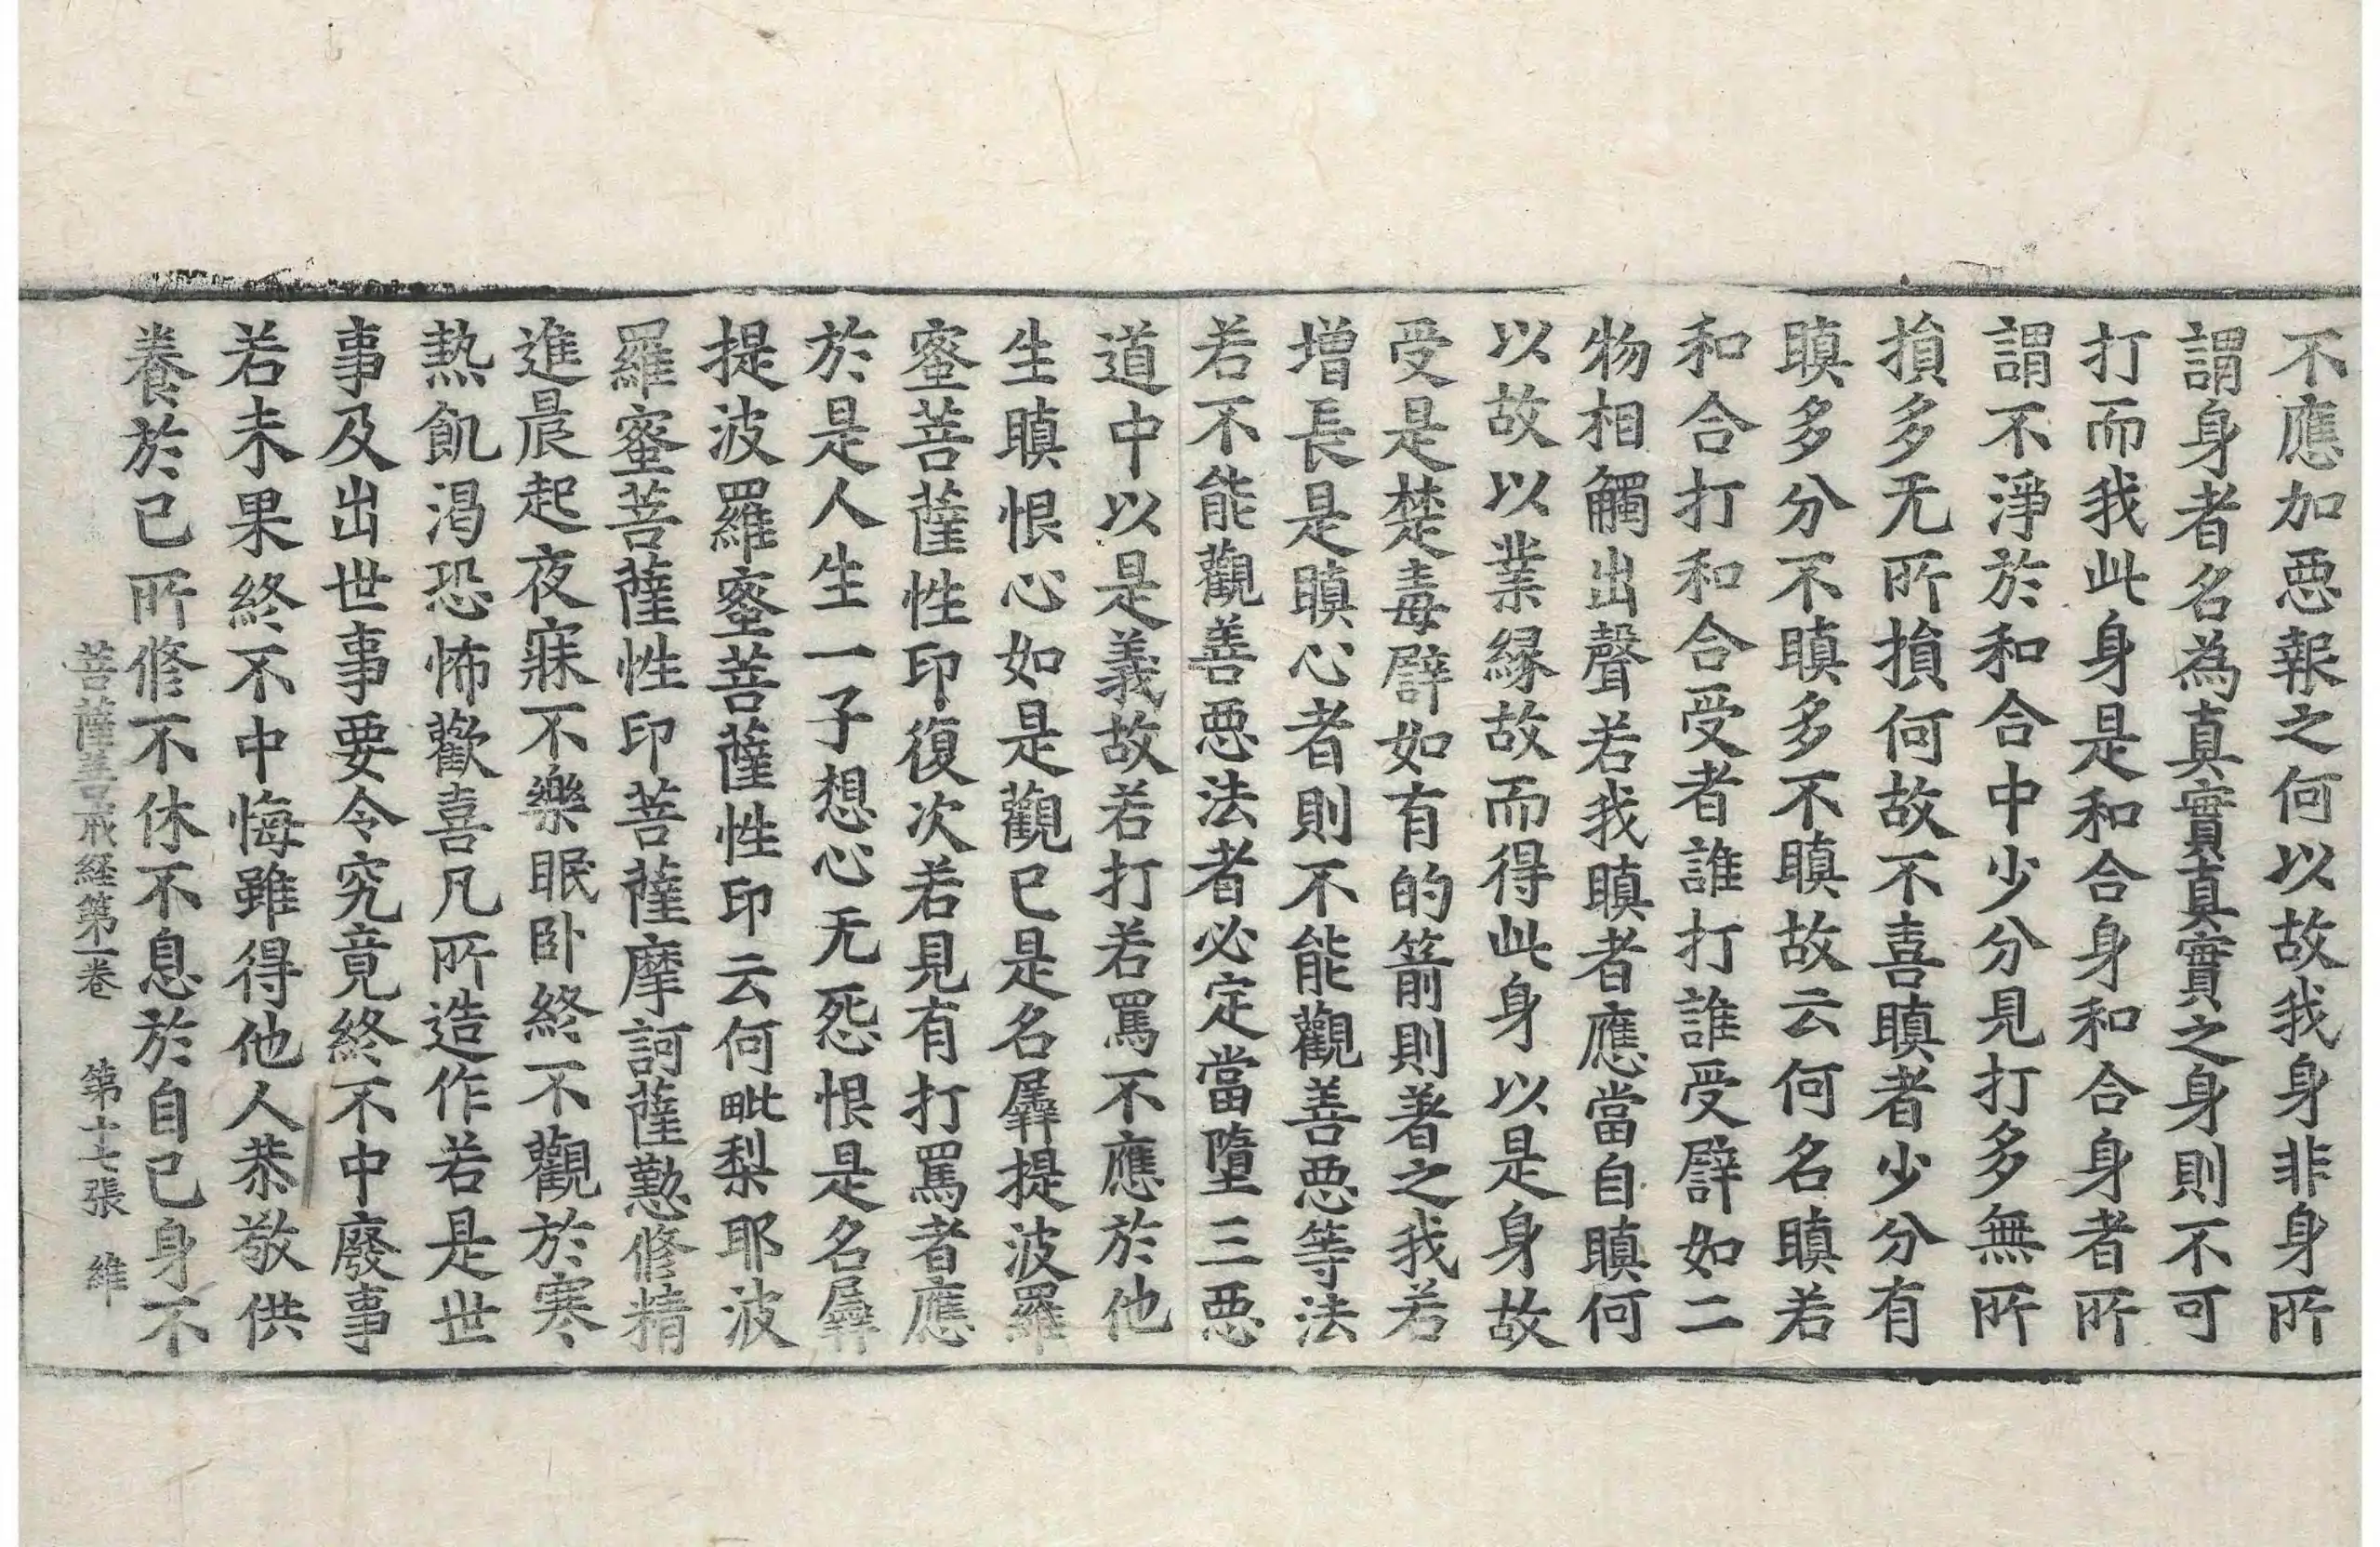 不應加惡報之何以故我身非身所
謂身者名為真實真實之身則不可
打而我此身是和合身和合身者所
謂不淨於和合中少分見打多無所
損多无所損何故不喜瞋者少分有
瞋多分不瞋多不瞋故云何名瞋若
和合打和合受者誰打誰受譬如二
物相觸出聲若我瞋者應當自瞋何
以故以業緣故而得此身以是身故
受是楚毒譬如有的箭則著之我若
增長是瞋心者則不能觀善惡等法
若不能觀善惡法者必定當墮三惡
道中以是義故若打若罵不應於他
生瞋恨心如是觀已是名羼提波羅
蜜菩薩性印復次若見有打罵者應
於是人生一子想心无怨恨是名羼
提波羅蜜菩薩性印云何毗梨耶波
羅蜜菩薩性印菩薩摩訶薩懃修精
進晨起夜寐不樂眠卧終不觀於寒
熱飢渴恐怖歡喜凡所造作若是世
事及出世事要令究竟終不中廢事
若未果終不中悔雖得他人恭敬供
養於己所修不休不息於自己身不
菩薩善戒経第一卷 第十七張 維